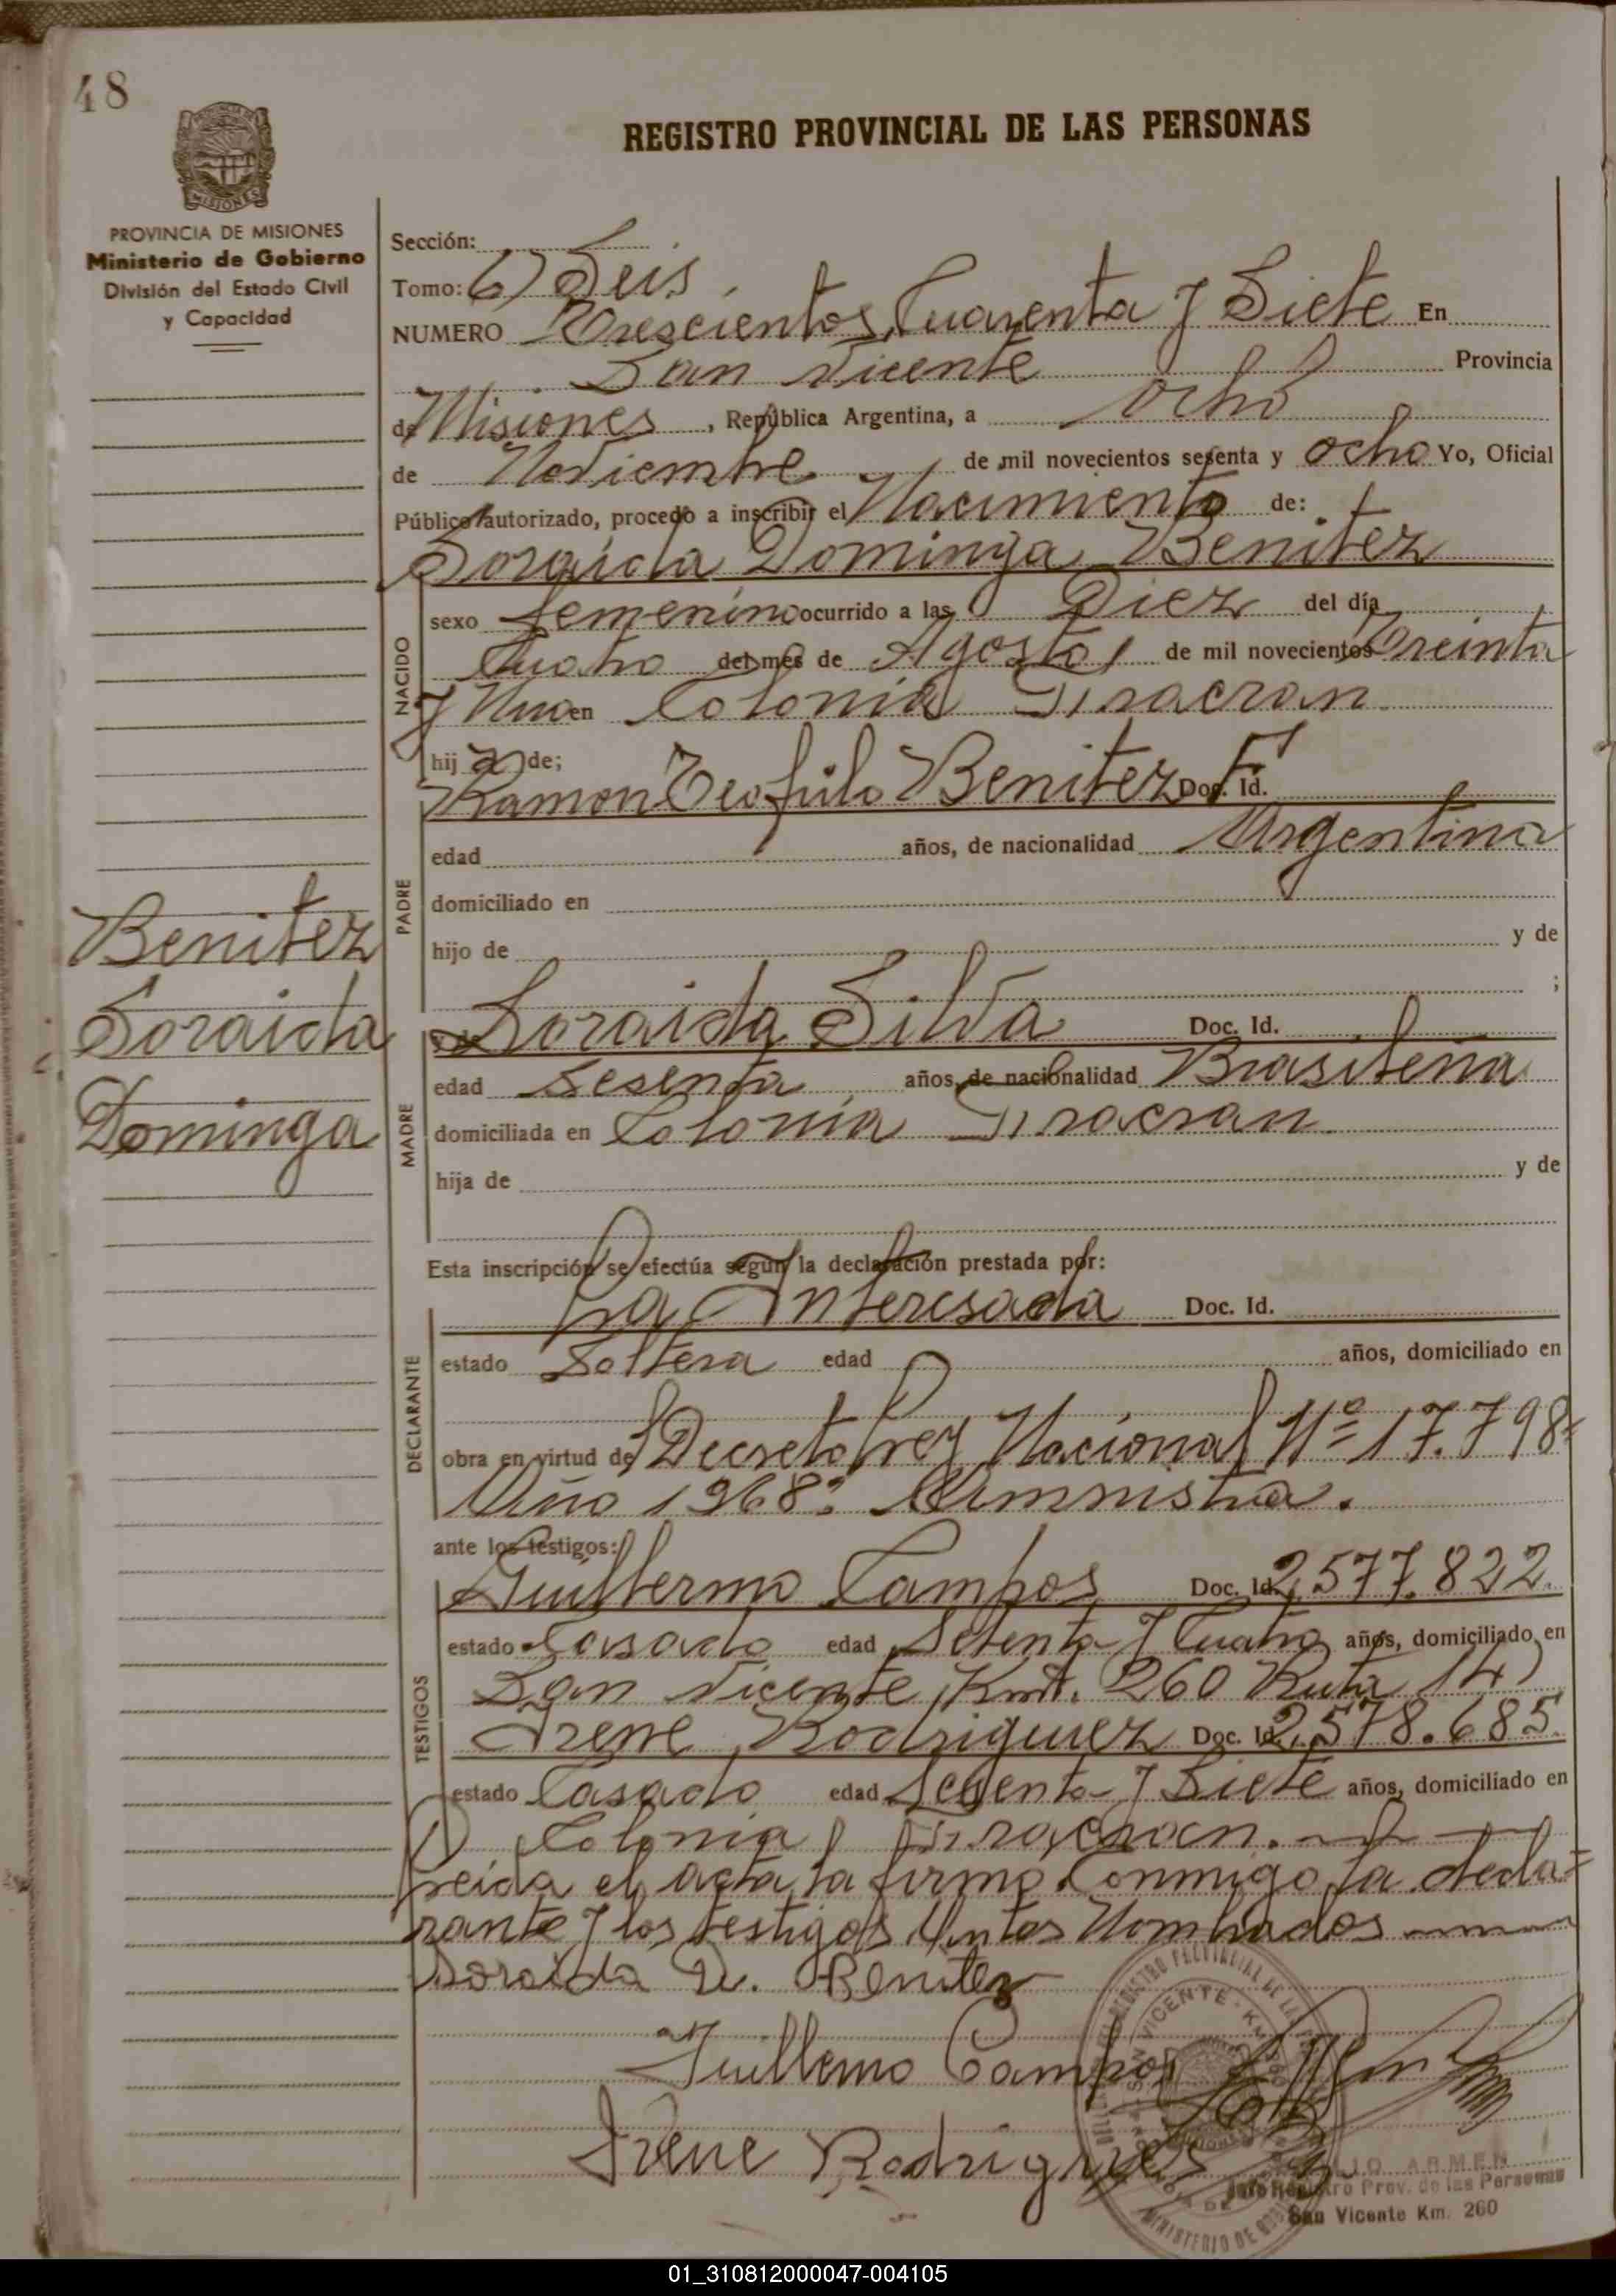 48
REGISTRO PROVINCIAL DE LAS PERSONAS
MISIONES
PROVINCIA DE MISIONES
Ministerio de Gobierno
División del Estado Civil
y Capacidad
Sección:
Tomo: 6) Seis
NUMERO Trescientos Cuarenta y Siete En
San Vicente Provincia
de Misiones, República Argentina, a ocho
de Noviembre de mil novecientos sesenta y ocho Yo, Oficial
Público autorizado, procedo a inscribir el Nacimiento de:
Soraida Dominga Benitez
NACIDO
sexo femenino ocurrido a las Diez del día
Cuatro del mes de Agosto de mil novecientos Treinta
y Uno en Colonia Piracran
hija de;
Ramon Teofilo Benitez F Doc. Id.
PADRE
edad años, de nacionalidad Argentina
domiciliado en
hijo de y de
;
Benitez
Soraida
Dominga
Soraida Silva Doc. Id.
MADRE
edad Sesenta años, de nacionalidad Brasileña
domiciliada en Colonia Piracran
hija de y de
Esta inscripción se efectúa según la declaración prestada por:
La Interesada Doc. Id.
DECLARANTE
estado Soltera edad años, domiciliado en
obra en virtud de Decreto Ley Nacional Nº 17.798=
Año 1968: Amnistia.
ante los testigos:
TESTIGOS
Guillermo Campos Doc. Id. 2,577.822
estado Casado edad Setenta y Cuatro años, domiciliado en
San Vicente, Kmt. 260 Ruta 14)
Irene Rodriguez Doc. Id. 2,578.685
estado Casado edad y Siete años, domiciliado en
Colonia Piracran.
Leida el acta, la firma Conmigo, la decla=
rante y los testigos Antes Nombrados
Soraida D. Benitez
Guillermo Campos
Irene Rodrigues
SAN VICENTE - KM 260
Jefe Registro Prov. de las Personas
San Vicente Km. 260
01_310812000047-004105